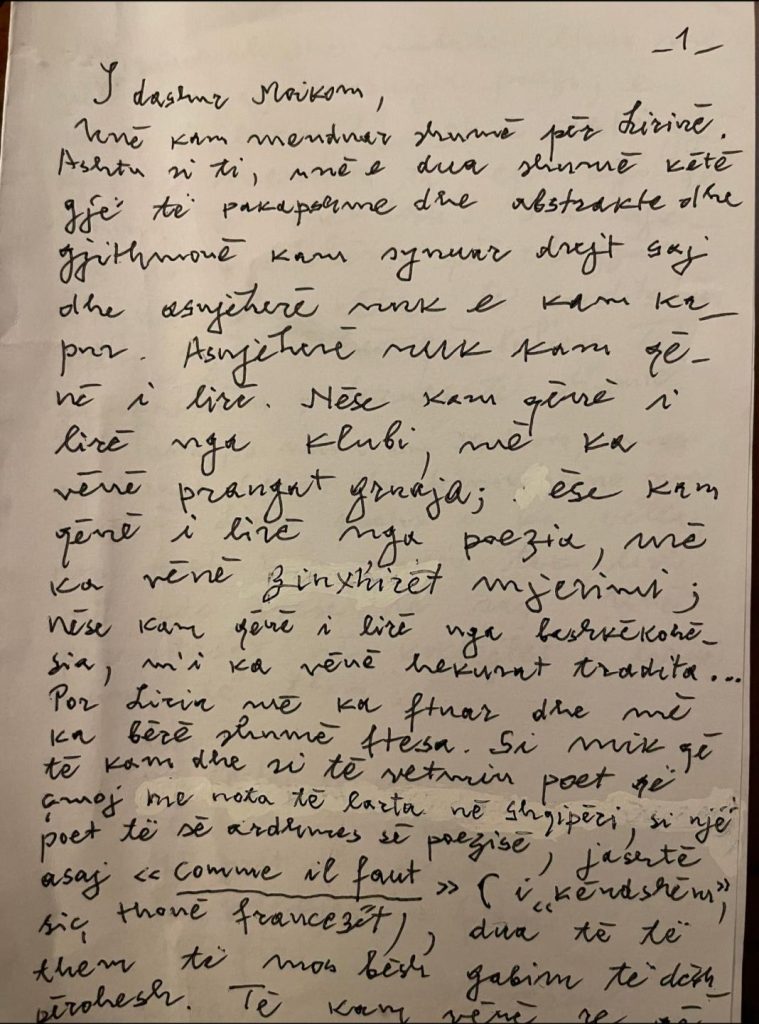 _1_
I dashur Moikom,
Unë kam menduar shumë për Lirinë.
Ashtu si ti, unë e dua shumë këtë
gjë të pakapshme dhe abstrakte dhe
gjithmonë kam synuar drejt saj
dhe asnjëherë nuk e kam ka_
pur. Asnjëherë nuk kam që_
në i lirë. Nëse kam qënë i
lirë nga klubi, më ka
vënë prangat gruaja; ëse kam
qënë i lirë nga poezia, më
ka vënë zinxhirët mjerimi;
nëse kam qënë i lirë nga bashkëkohë_
sia, m'i ka vënë hekurat tradita...
Por Liria më ka ftuar dhe më
ka bërë shumë ftesa. Si mik që
të kam dhe si të vetmin poet që
çmoj me nota të larta në Shqipëri, si një
poet të së ardhmes së poezisë, jashtë
asaj « comme il faut » ( i „këndshëm”,
siç thonë francezët), dua të të
them të mos bësh gabim të dësh_
përohesh. Të kam vënë re që